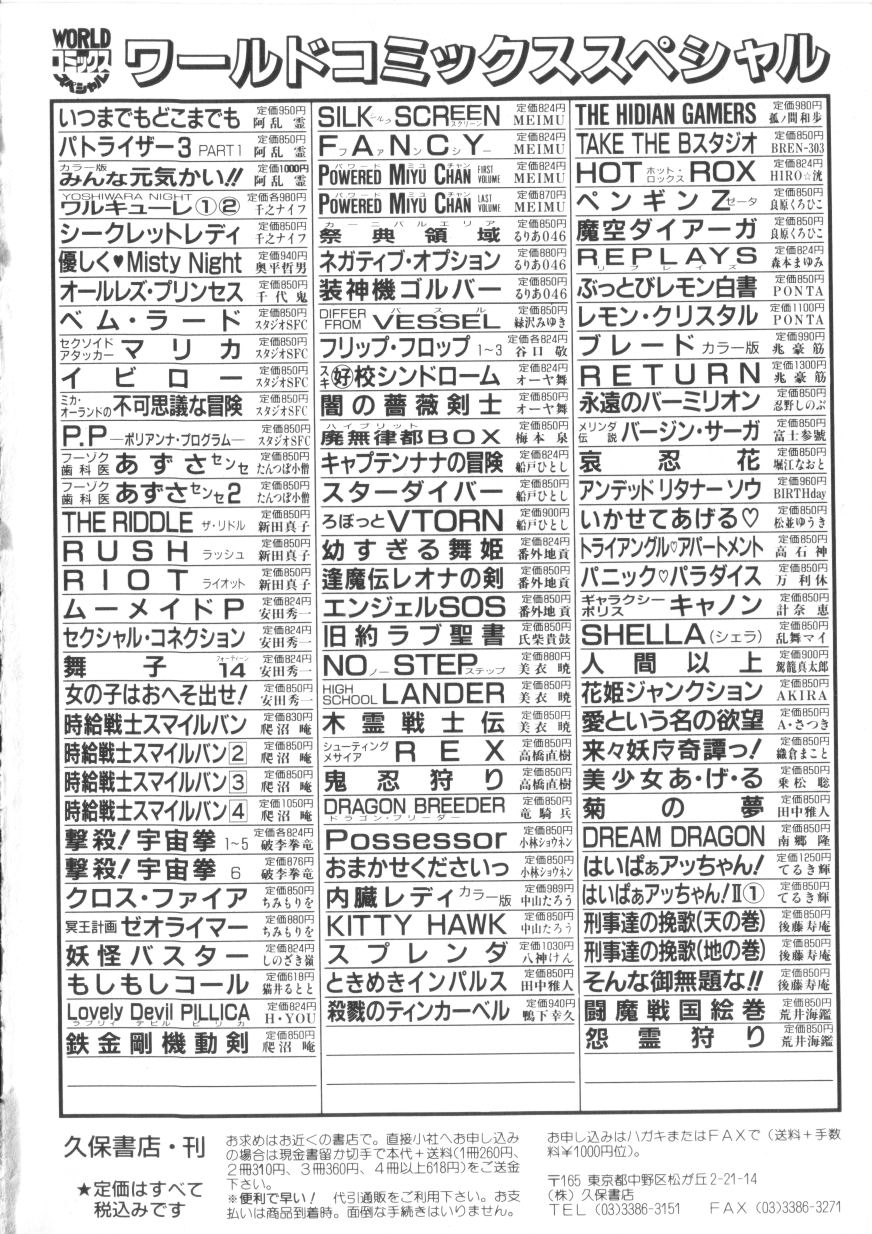 WORLD コミックス スペシャル
ワールドコミックススペシャル
いつまでもどこまでも 定価950円 阿乱 霊
パトライザー3 PART1 定価850円 阿乱 霊
カラー版 みんな元気かい!! 定価1000円 阿乱 霊
YOSHIWARA NIGHT ワルキューレ①② 定価各980円 千之ナイフ
シークレットレディ 定価850円 千之ナイフ
優しく♥Misty Night 定価940円 奥平哲男
オールレズ・プリンセス 定価850円 千代鬼
ベム・ラード 定価850円 スタジオSFC
セクソイドアタッカー マリカ 定価850円 スタジオSFC
イビロー 定価850円 スタジオSFC
ミカ・オーランドの不可思議な冒険 定価850円 スタジオSFC
P.P ―ポリアンナ・プログラム― 定価850円 スタジオSFC
フーゾク歯科医 あずさセンセ 定価850円 たんつぼ小僧
フーゾク歯科医 あずさセンセ2 定価850円 たんつぼ小僧
THE RIDDLE ザ・リドル 定価850円 新田真子
RUSH ラッシュ 定価850円 新田真子
RIOT ライオット 定価850円 新田真子
ムーメイドP 定価824円 安田秀一
セクシャル・コネクション 定価824円 安田秀一
舞子14 フォーティーン 定価824円 安田秀一
女の子はおへそ出せ! 定価850円 安田秀一
時給戦士スマイルバン 定価830円 爬沼 庵
時給戦士スマイルバン2 定価850円 爬沼 庵
時給戦士スマイルバン3 定価850円 爬沼 庵
時給戦士スマイルバン4 定価1050円 爬沼 庵
撃殺!宇宙拳 1~5 定価各824円 破李拳竜
撃殺!宇宙拳 6 定価876円 破李拳竜
クロス・ファイア 定価850円 ちみもりを
冥王計画ゼオライマー 定価880円 ちみもりを
妖怪バスター 定価824円 しのざき嶺
もしもしコール 定価618円 猫井るとと
Lovely Devil PILLICA ラブリィ デビル ピリカ 定価824円 H・YOU
鉄金剛機動剣 定価850円 爬沼 庵
SILK SCREEN シルク スクリーン 定価824円 MEIMU
FANCY ファンシー 定価824円 MEIMU
POWERED MIYU CHAN パワード ミユ チャン FIRST VOLUME 定価824円 MEIMU
POWERED MIYU CHAN パワード ミユ チャン LAST VOLUME 定価870円 MEIMU
祭典領域 カーニバルエリア 定価850円 るりあ046
ネガティブ・オプション 定価880円 るりあ046
装神機ゴルバー 定価850円 るりあ046
DIFFER FROM VESSEL 定価850円 緑沢みゆき
フリップ・フロップ 1~3 定価各824円 谷口 敬
スキ好校シンドローム 定価824円 オーヤ舞
闇の薔薇剣士 定価850円 オーヤ舞
廃無律都BOX ハイブリット 定価850円 梅本 泉
キャプテンナナの冒険 定価824円 船戸ひとし
スターダイバー 定価850円 船戸ひとし
ろぼっとVTORN 定価900円 船戸ひとし
幼すぎる舞姫 定価824円 番外地貢
逢魔伝レオナの剣 定価850円 番外地貢
エンジェルSOS 定価850円 番外地貢
旧約ラブ聖書 定価850円 氏柴貴鼓
NO STEP ノーステップ 定価880円 美衣 暁
HIGH SCHOOL LANDER 定価850円 美衣 暁
木霊戦士伝 定価850円 美衣 暁
シューティングメサイア REX 定価850円 高橋直樹
鬼忍狩り 定価850円 高橋直樹
DRAGON BREEDER ドラゴン・ブリーダー 定価850円 竜騎兵
Possessor 定価850円 小林ショウネン
おまかせくださいっ 定価850円 小林ショウネン
内臓レディ カラー版 定価989円 中山たろう
KITTY HAWK 定価850円 中山たろう
スプレンダ 定価1030円 八神けん
ときめきインパルス 定価850円 田中雅人
殺戮のティンカーベル 定価940円 鴨下幸久
THE HIDIAN GAMERS 定価980円 狐ノ間和歩
TAKE THE Bスタジオ 定価850円 BREN-303
HOT ROX ホット・ロックス 定価824円 HIRO☆洸
ペンギンZ ゼータ 定価850円 良原くろひこ
魔空ダイアーガ 定価850円 良原くろひこ
REPLAYS リプレイズ 定価824円 森本まゆみ
ぶっとびレモン白書 定価850円 PONTA
レモン・クリスタル 定価1100円 PONTA
ブレード カラー版 定価990円 兆豪筋
RETURN 定価1300円 兆豪筋
永遠のバーミリオン 定価850円 忍野しのぶ
メリンダ伝説 バージン・サーガ 定価850円 富士参號
哀忍花 定価850円 堀江なおと
アンデッドリタナーソウ 定価960円 BIRTHday
いかせてあげる♡ 定価850円 松並ゆうき
トライアングル♡アパートメント 定価850円 高石神
パニック♡パラダイス 定価850円 万利休
ギャラクシーポリス キャノン 定価850円 計奈 恵
SHELLA(シェラ) 定価850円 乱舞マイ
人間以上 定価900円 駕籠真太郎
花姫ジャンクション 定価850円 AKIRA
愛という名の欲望 定価850円 A・さつき
来々妖庁奇譚っ! 定価850円 織倉まこと
美少女あ・げ・る 定価850円 乗松 聡
菊の夢 定価850円 田中雅人
DREAM DRAGON 定価850円 南郷 隆
はいぱぁアッちゃん! 定価1250円 てるき輝
はいぱぁアッちゃん!Ⅱ① 定価850円 てるき輝
刑事達の挽歌(天の巻) 定価850円 後藤寿庵
刑事達の挽歌(地の巻) 定価850円 後藤寿庵
そんな御無題な!! 定価850円 後藤寿庵
闘魔戦国絵巻 定価850円 荒井海鑑
怨霊狩り 定価850円 荒井海鑑
久保書店・刊
★定価はすべて
税込みです
お求めはお近くの書店で。直接小社へお申し込み
の場合は現金書留か切手で本代+送料(1冊260円、
2冊310円、3冊360円、4冊以上618円)をご送金
下さい。
※便利で早い! 代引通販をご利用下さい。お支
払いは商品到着時。面倒な手続きはいりません。
お申し込みはハガキまたはFAXで(送料+手数
料¥1000円位)。
〒165 東京都中野区松が丘2-21-14
(株)久保書店
TEL (03)3386-3151 FAX (03)3386-3271